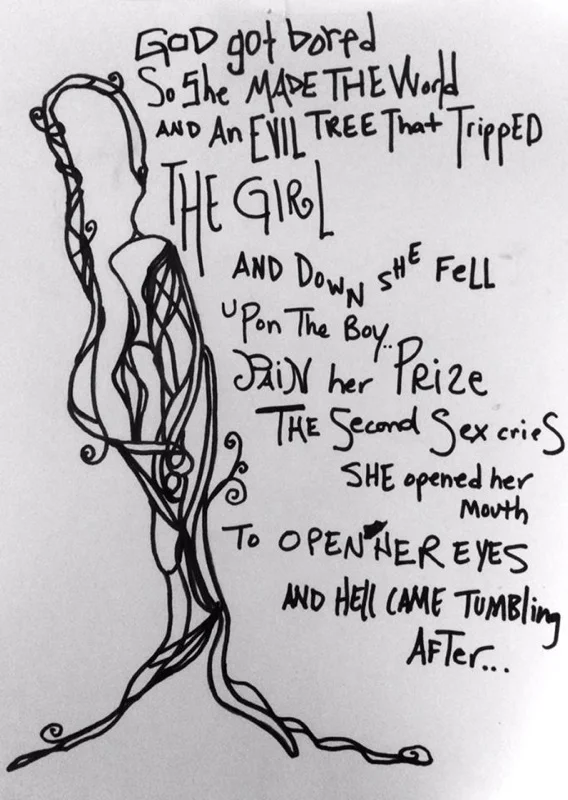 GOD got bored
So She MADE THE World
AND An EVIL TREE That TrippED
THE GIRL
AND DOWN SHE FeLL
UPon The Boy..
PAiN her PRIZe
THE Second Sex crieS
SHE opened her
mouth
To OPEN HER EYES
AND HEll CAME TUMBling
AFTer...